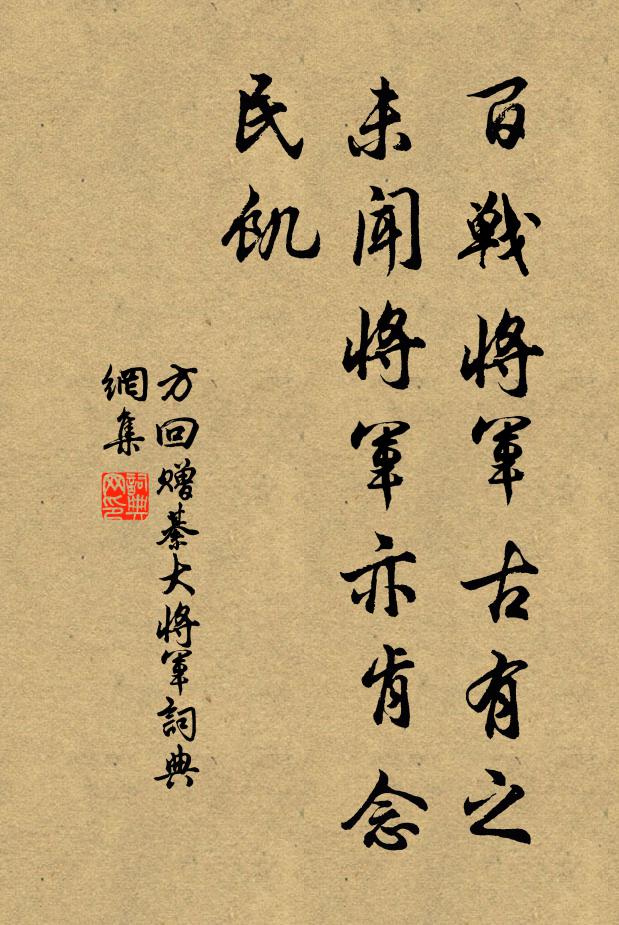 百戰將軍古有之
未聞將軍亦肯念
民飢
方回贈綦大將軍詞典
網集
詞典
网印